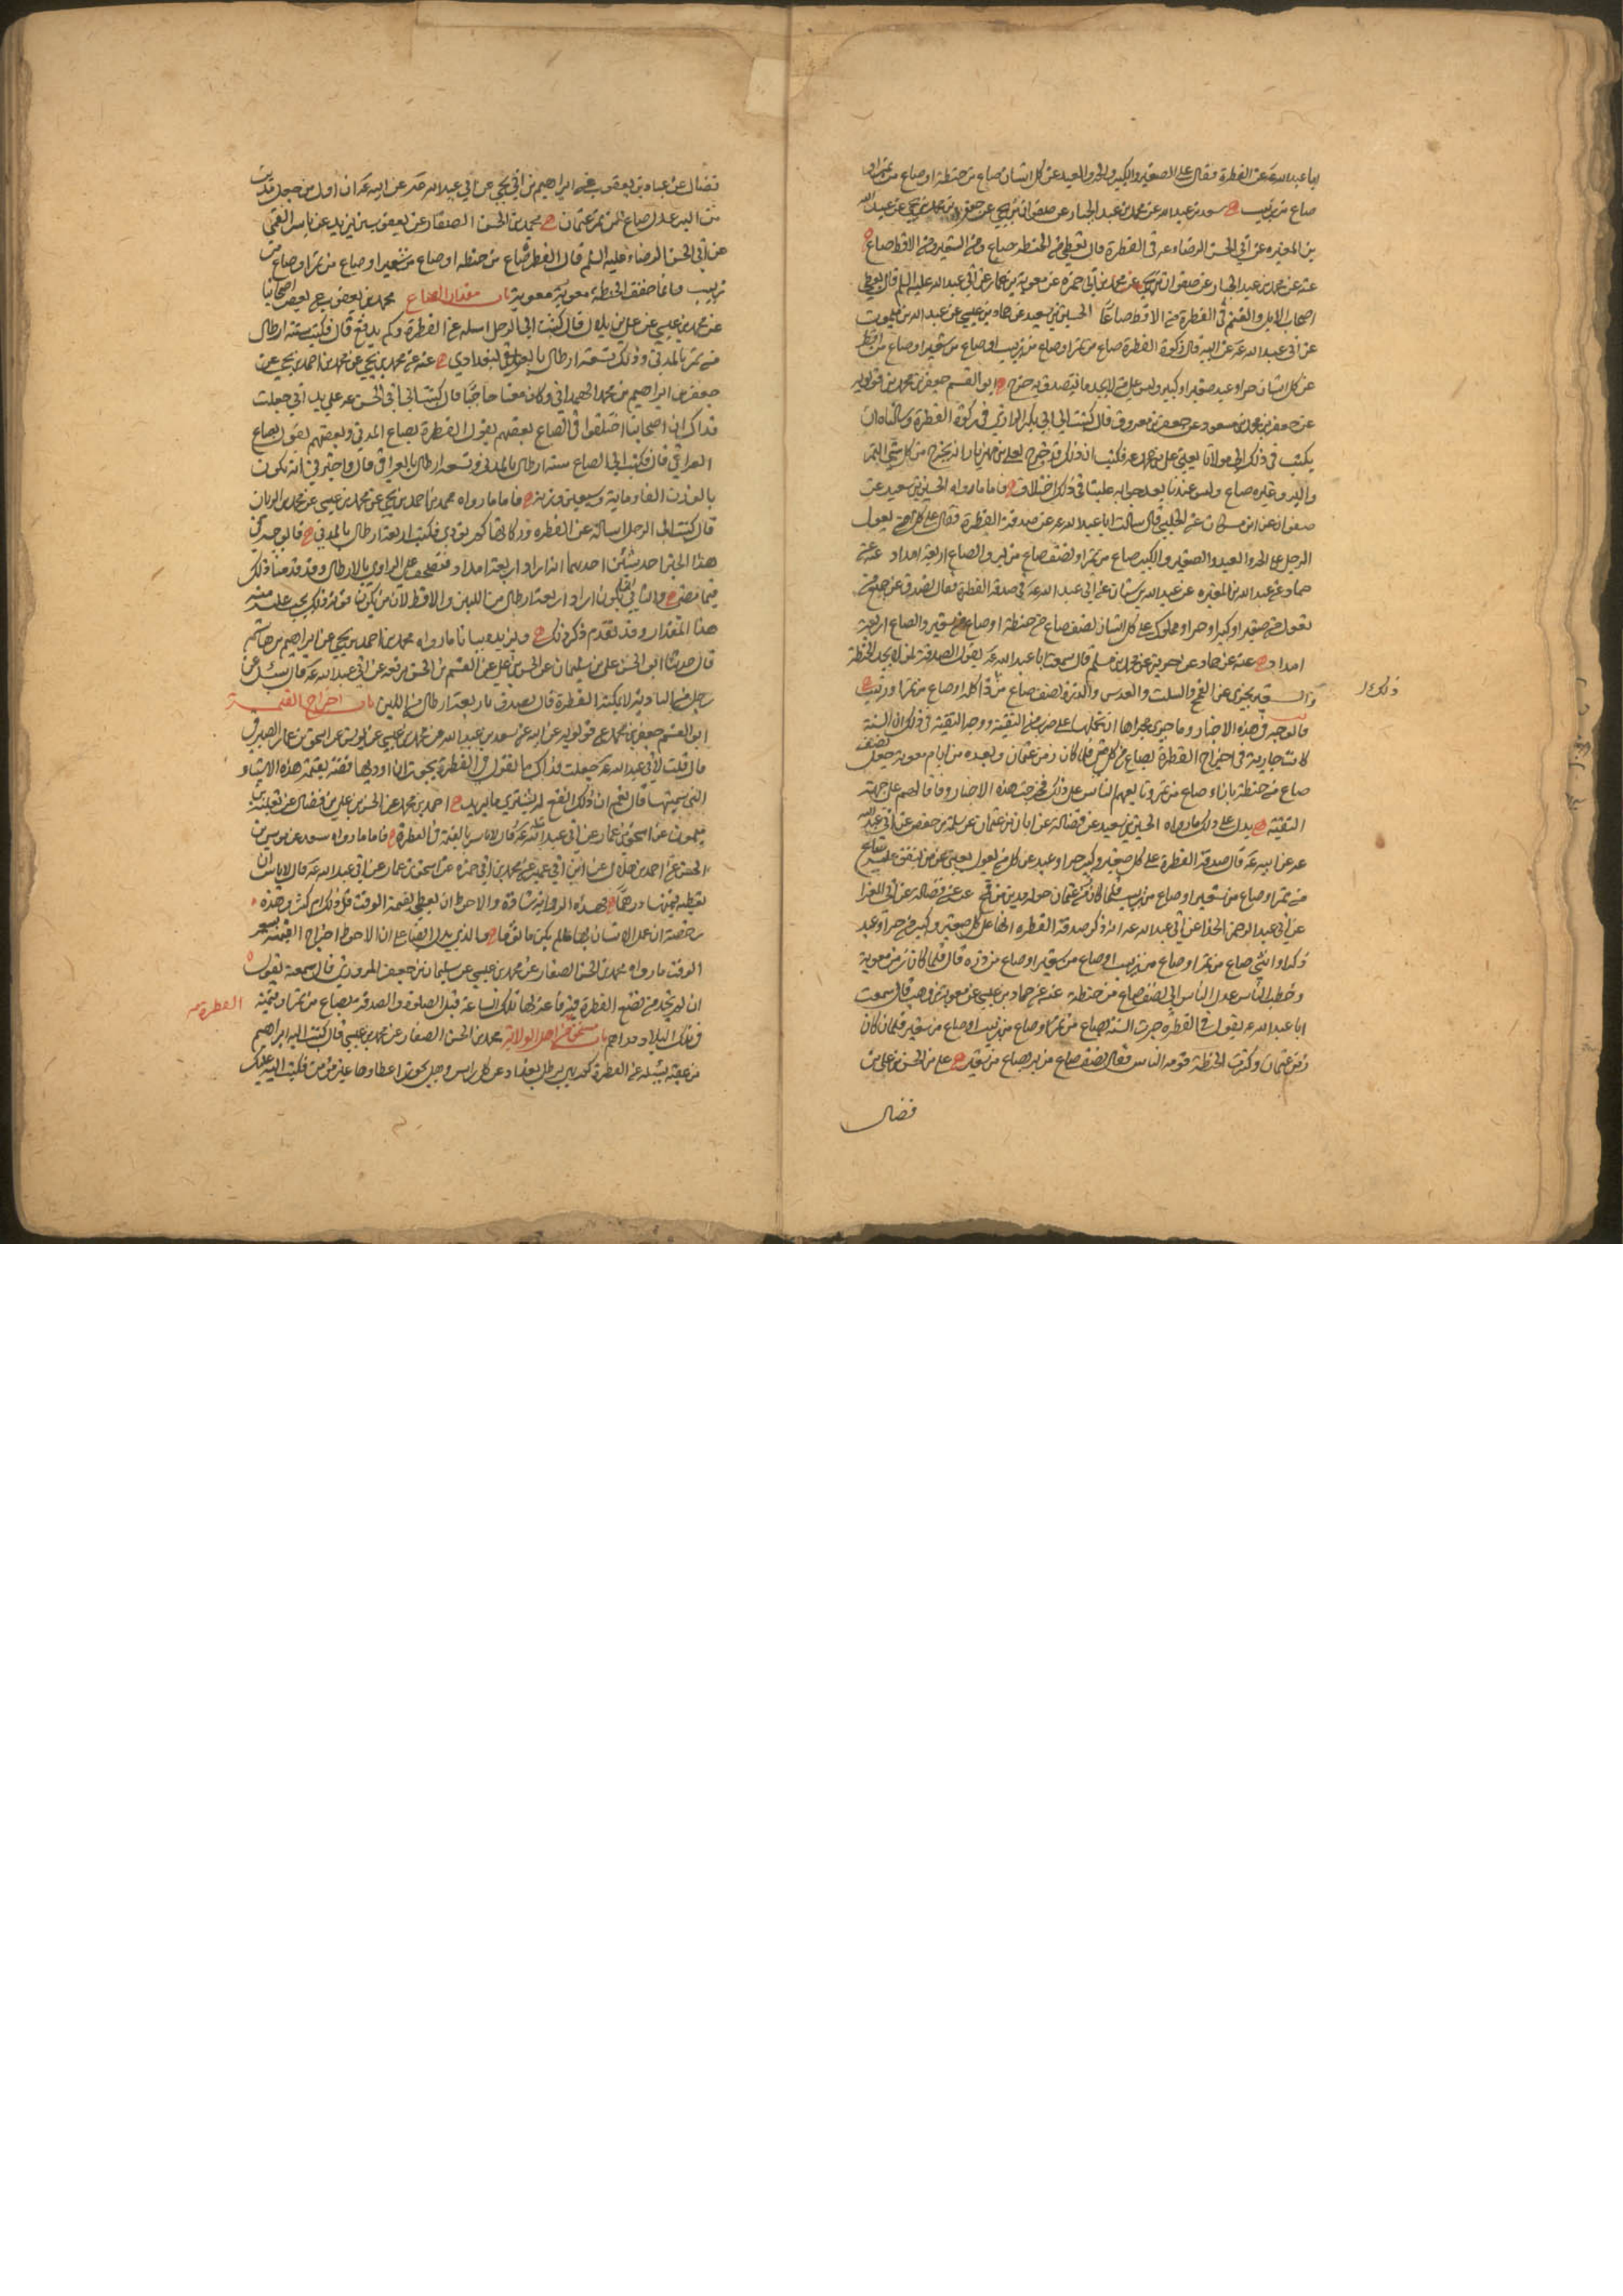 ابا عبد الله عه عن الفطرة فقال على الصغير والكبير والحر والعبد عن كل انسان صاع من حنطة او صاع من تمر او
صاع من زبيب سعد بن عبد الله عن محمد بن عبد الجبار عن صفوان بن يحيى عن جعفر بن محمد بن يحيى عن عبد الله
بن المغيره عن ابي الحسن الرضا عه في الفطرة قال يعطى من الحنطة صاع ومن الشعير ومن الاقط صاع
عنه عن محمد بن عبد الجبار عن صفوان بن يحيى عن محمد بن ابي حمزه عن معوية بن عمار عن ابي عبد الله عليه السلم قال يعطى
اصحاب الابل والغنم في الفطرة من الاقط صاعا الحسين بن سعيد عن حماد بن عيسى عن عبد الله بن ميمون
عن ابي عبد الله عه عن ابيه قال زكوة الفطرة صاع من تمر او صاع من زبيب او صاع من شعير او صاع من اقط
عن كل انسان حر او عبد صغير او كبير وليس على من لا يجد ما يتصدق به حرج ابو القسم جعفر بن محمد بن قولويه
عن جعفر بن محمد بن مسعود عن جعفر بن معروف قال كتبت الى ابي بكر الرازي في زكوة الفطرة وسالناه ان
يكتب في ذلك الى مولانا يعني علي بن محمد عه فكتب ان ذلك قد خرج لعلي بن مهزيار انه يخرج من كل شي التمر
والبر وغيره صاع وليس عندنا بعد جوابه علينا في ذلك اختلاف فاما ما رواه الحسين بن سعيد عن
صفوان عن ابن مسكان عن الحلبي قال سالت ابا عبد الله عه عن صدقة الفطرة فقال على كل من يعول
الرجل على الحر والعبد والصغير والكبير صاع من تمر او نصف صاع من بر والصاع اربعة امداد عنه عن
حماد عن عبد الله بن المغيره عن عبد الله بن سنان عن ابي عبد الله عه في صدقة الفطرة فقال تصدق عن جميع من
تعول من صغير او كبير او حر او مملوك على كل انسان نصف صاع من حنطة او صاع من شعير والصاع اربعة
امداد عنه عن حماد عن حريز عن محمد بن مسلم قال سمعت ابا عبد الله عه يقول الصدقة لمن لا يجد الحنطة
والشعير يجزى عن القمح والسلت والعدس والذرة نصف صاع من ذا كله او صاع من تمر او زبيب
ذلك
فالوجه في هذه الاخبار وما جرى مجراها ان نحملها على ضرب من التقية ووجه التقية في ذلك ان السنة
كانت جارية في اخراج الفطرة بصاع من كل شي فلما كان زمن عثمان وبعده من ايام معوية جعل نصف
صاع من حنطة بازاء صاع من تمر وتابعهم الناس على ذلك فخرجت هذه الاخبار وفاقا لهم على جهة
التقية يدل على ذلك ما رواه الحسين بن سعيد عن فضالة عن ابان بن عثمان عن سلمة بن حفص عن ابي عبد الله
عه عن ابيه عه قال صدقة الفطرة على كل صغير وكبير حر او عبد عن كل من يعول يعني من ينفق عليه صاع
من تمر او صاع من شعير او صاع من زبيب فلما كان زمن عثمان حوله مدين من قمح عنه عن فضالة عن ابي المغرا
عن ابي عبد الرحمن الحذا عن ابي عبد الله عه انه ذكر صدقة الفطره انها على كل صغير وكبير من حر او عبد
ذكر او انثى صاع من تمر او صاع من زبيب او صاع من شعير او صاع من ذره قال فلما كان زمن معوية
وخصب الناس عدل الناس الى نصف صاع من حنطة عنه عن حماد بن عيسى عن معوية بن وهب قال سمعت
ابا عبد الله عه يقول في الفطره جرت السنة بصاع من تمر او صاع من زبيب او صاع من شعير فلما كان
زمن عثمان وكثرت الحنطة قومه الناس فقال نصف صاع من بر بصاع من شعير علي بن الحسن بن علي بن
فضال
فضال عن عباد بن يعقوب عن ابراهيم بن ابي يحيى عن ابي عبد الله عه عن ابيه عه ان اول من جعل مدين
من البر عدل صاع من تمر عثمان محمد بن الحسن الصفار عن يعقوب بن يزيد عن ياسر القمي
عن ابي الحسن الرضا عليه السلم قال الفطره صاع من حنطه او صاع من شعير او صاع من تمر او صاع من
زبيب وانما خفف الحنطة معوية باب مقدار الصاع محمد بن يعقوب عن بعض اصحابنا
عن محمد بن عيسى عن علي بن بلال قال كتبت الى الرجل اسله عن الفطرة وكم يدفع قال فكتب ستة ارطال
من تمر بالمدني وذلك تسعة ارطال بالبغدادي عنه عن محمد بن يحيى عن محمد بن احمد بن يحيى عن
جعفر بن ابراهيم بن محمد الهمداني وكان معنا حاجا قال كتبت الى ابي الحسن عه على يد ابي جعلت
فداك ان اصحابنا اختلفوا في الصاع بعضهم يقول الفطرة بصاع المدني وبعضهم يقول بصاع
العراقي قال فكتب الي الصاع ستة ارطال بالمدني وتسعة ارطال بالعراقي قال واخبرني انه يكون
بالوزن الفا وماية وسبعين وزنة فاما ما رواه محمد بن احمد بن يحيى عن محمد بن عيسى عن محمد بن الريان
قال كتبت الى الرجل اساله عن الفطره وزكاتها كم يؤدي فكتب اربعة ارطال بالمدني فالوجه في
هذا الخبر احد شيئين احدهما انه اراد اربعة امداد فتصحف على الراوي بالارطال وقد قدمنا ذلك
فيما مضى والثاني ان يكون اراد اربعة ارطال من اللبن والاقط لان من يكون قوته ذلك يجب عليه منه
هذا المقدار وقد تقدم ذكر ذلك ويزيده بيانا ما رواه محمد بن احمد بن يحيى عن ابراهيم بن هاشم
قال حدثنا ابو الحسن علي بن سليمان عن الحسن بن علي عن القسم بن الحسن رفعه عن ابي عبد الله عه قال سئل عن
رجل من البادية لا يمكنه الفطرة قال يصدق باربعة ارطال من اللبن باب اخراج القيمة
ابو القسم جعفر بن محمد بن قولويه عن ابيه عن سعد بن عبد الله عن محمد بن عيسى عن يونس عن اسحق بن عمار الصيرفي
قال قلت لابي عبد الله عه جعلت فداك ما تقول في الفطرة يجوز ان اوديها فضة بقيمة هذه الاشياء
التي سميتها قال نعم ان ذلك انفع له يشتري ما يريد احمد بن محمد عن الحسن بن علي بن فضال عن ثعلبة بن
ميمون عن اسحق بن عمار عن ابي عبد الله عه قال لا باس بالقيمة في الفطرة فاما ما رواه سعد عن موسى بن
الحسن عن احمد بن هلال عن ابن ابي عمير عن محمد بن ابي حمزه عن اسحق بن عمار عن ابي عبد الله عه قال لا باس ان
يعطيه قيمتها درهما فهذه الرواية شاذة والاحوط ان يعطى بقيمة الوقت قل ذلك ام كثر وهذه
رخصة ان عمل الانسان بها لم يكن ماثوما والذي يدل ايضا على ان الاحوط اخراج القيمة بسعر
الوقت ما رواه محمد بن الحسن الصفار عن محمد بن عيسى عن سليمان بن جعفر المروزي قال سمعته يقول
ان لم تجد من تضع الفطرة فيه فاعزلها تلك الساعة قبل الصلوة والصدقة بصاع من تمر او قيمته
في تلك البلاد دراهم باب مستحق الفطرة من اهل الولاية محمد بن الحسن الصفار عن محمد بن عيسى قال كتب اليه ابراهيم
بن عقبة يسئله عن الفطرة كم هي برطل بغداد عن كل راس وهل يجوز اعطاوها غير مؤمن فكتب اليه عليك